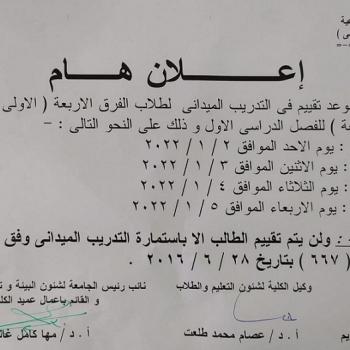 إعلان هام
وعد تقييم فى التدريب الميدانى لطلاب الفرق الاربعة ( الاولى
) للفصل الدراسى الاول و ذلك على النحو التالى : -
: يوم الاحد الموافق ٢ / ١ / ٢٠٢٢
: يوم الاثنين الموافق ٣ / ١ / ٢٠٢٢
: يوم الثلاثاء الموافق ٤ / ١ / ٢٠٢٢
: يوم الاربعاء الموافق ٥ / ١ / ٢٠٢٢
: ولن يتم تقييم الطالب الا باستمارة التدريب الميدانى وفق
( ٦٦٧ ) بتاريخ ٢٨ / ٦ / ٢٠١٦ .
وكيل الكلية لشئون التعليم والطلاب
أ . د / عصام محمد طلعت
نائب رئيس الجامعة لشئون البيئة و
و القائم باعمال عميد الكل
أ . د / مها كامل غا